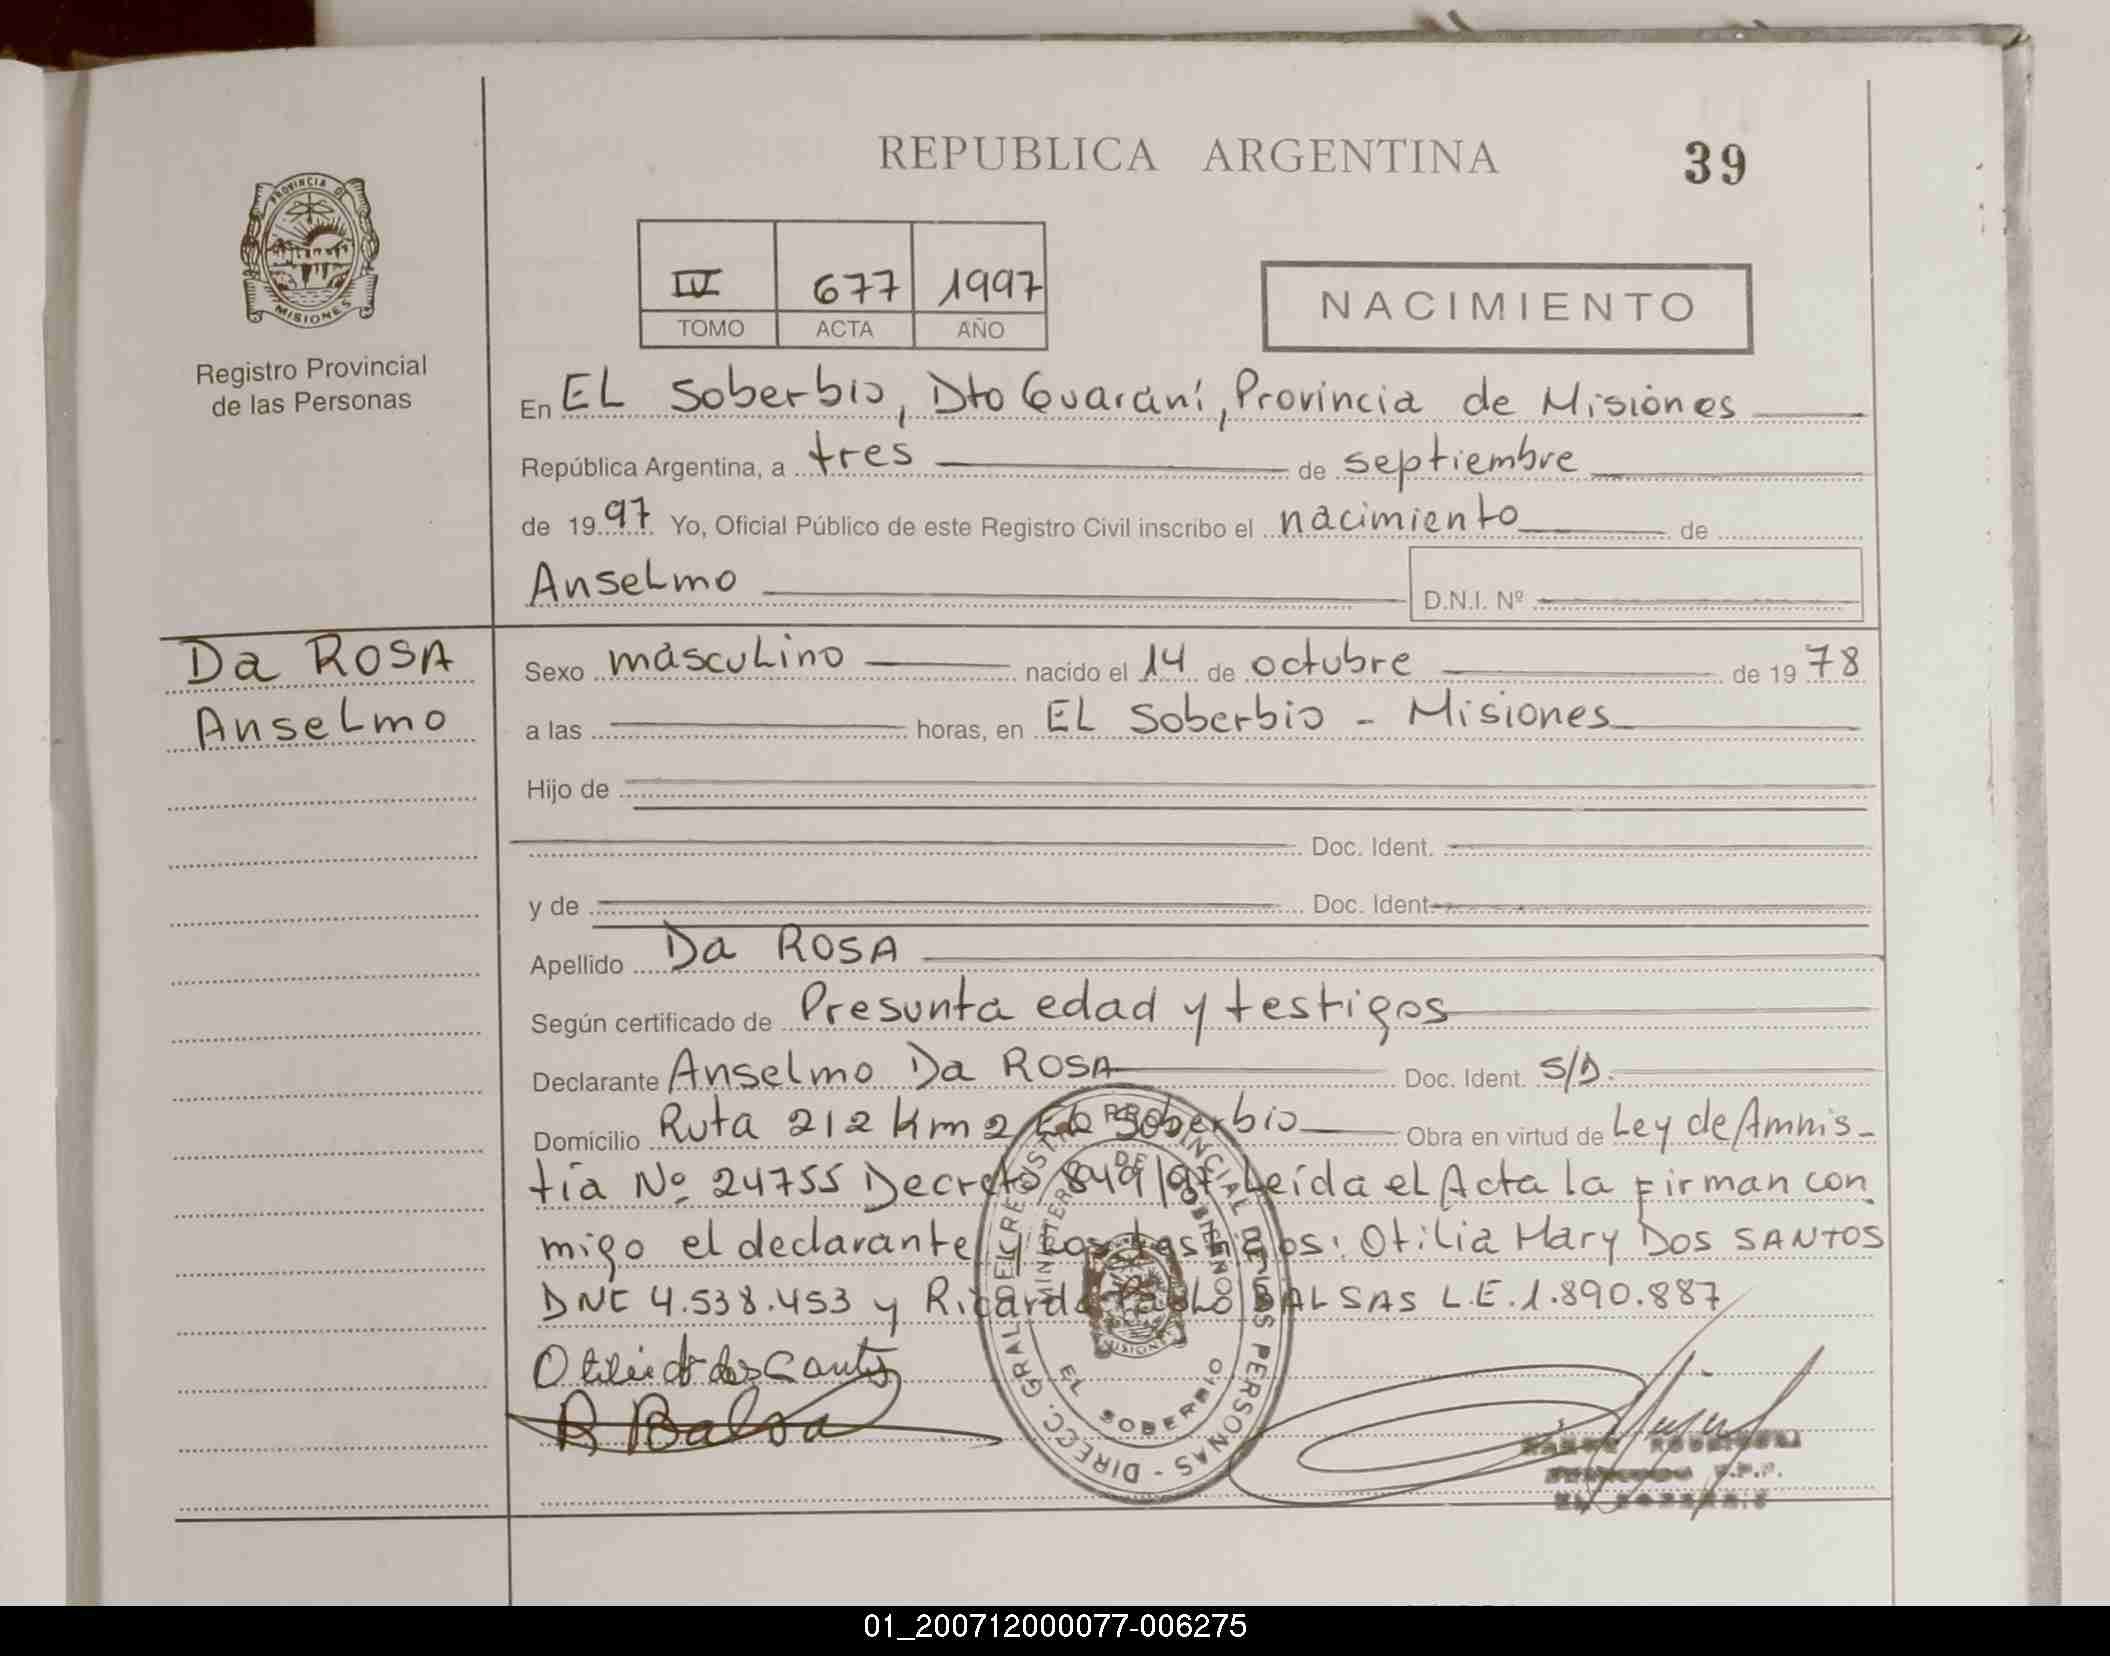 REPUBLICA ARGENTINA
39
PROVINCIA DE
MISIONES
Registro Provincial
de las Personas
IV 677 1997
TOMO ACTA AÑO
NACIMIENTO
En EL Soberbio, Dto Guaraní, Provincia de Misiones
República Argentina, a tres de septiembre
de 1997 Yo, Oficial Público de este Registro Civil inscribo el nacimiento de
Anselmo D.N.I. Nº
Da ROSA
Anselmo
Sexo masculino nacido el 14 de octubre de 1978
a las horas, en EL Soberbio - Misiones
Hijo de
Doc. Ident.
y de Doc. Ident
Apellido Da ROSA
Según certificado de Presunta edad y testigos
Declarante Anselmo Da ROSA Doc. Ident. S/D.
Domicilio Ruta 212 Km 2 EL Soberbio Obra en virtud de Ley de Amnis-
tía Nº 24755 Decreto 849/97 Leída el Acta la firman con
migo el declarante y Los testigos: Otilia Mary Dos SANTOS
DNI 4.538.453 y Ricardo Pablo BALSAS L.E. 1.890.887
R Balsa
DIRECC. GRAL DEL REGISTRO PROVINCIAL DE LAS PERSONAS
MINISTERIO DE GOBIERNO
MISIONES
EL SOBERBIO
01_200712000077-006275